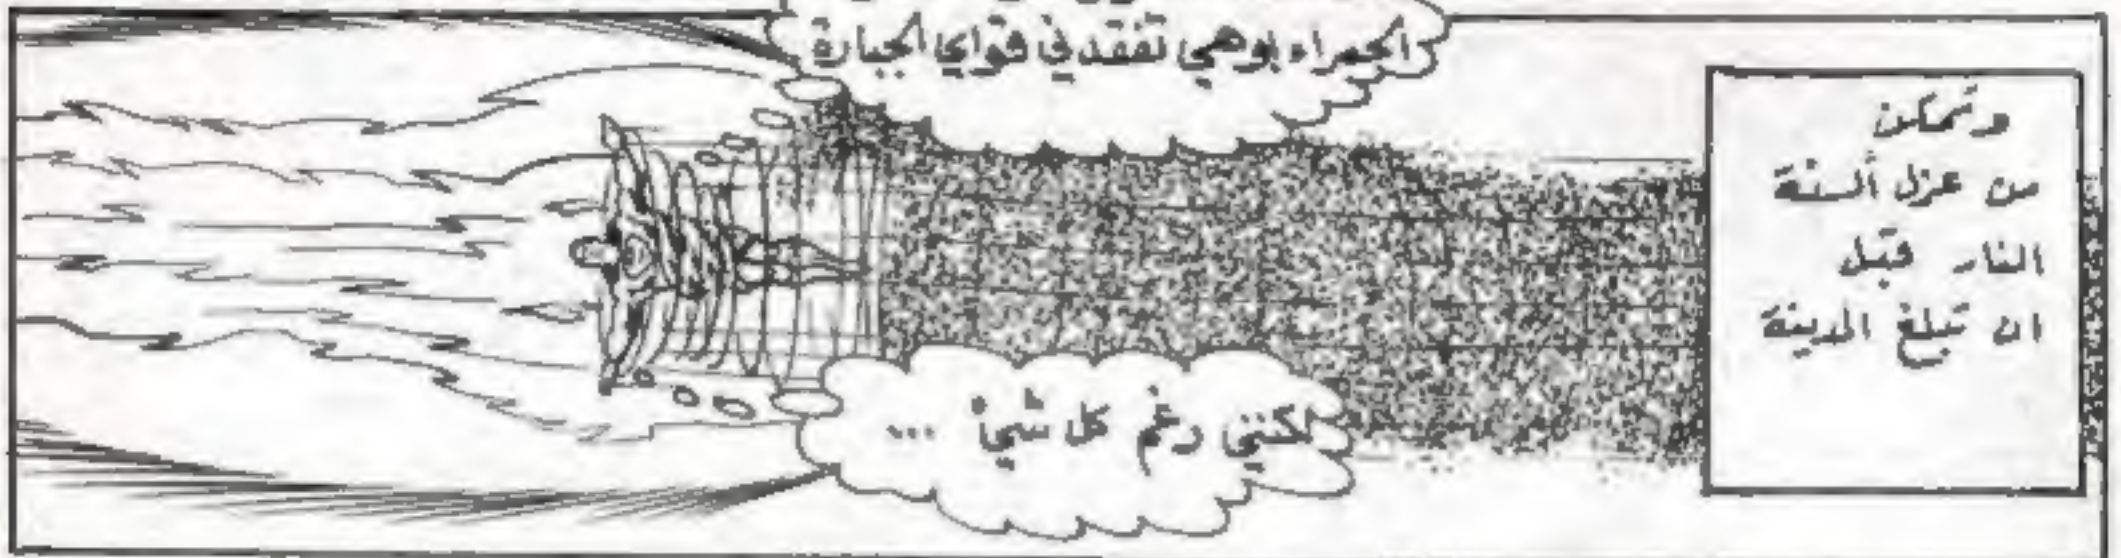 وتمكن
من عزل ألسنة
النار قبل
ان تبلغ المدينة
الحمراء، وهي تفقدني قواي الجبارة
لكنني رغم كل شيء ...